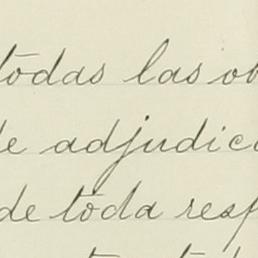 todas las ob
de adjudica
de toda resp